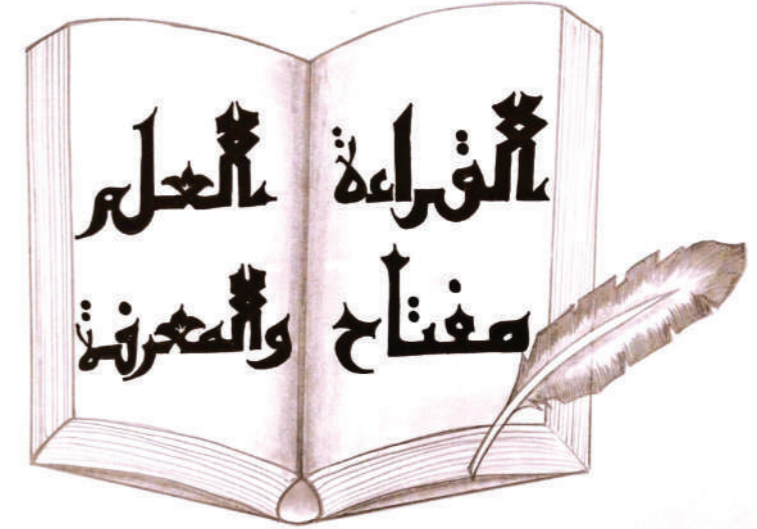 القراءة
مفتاح
العلم
والمعرفة